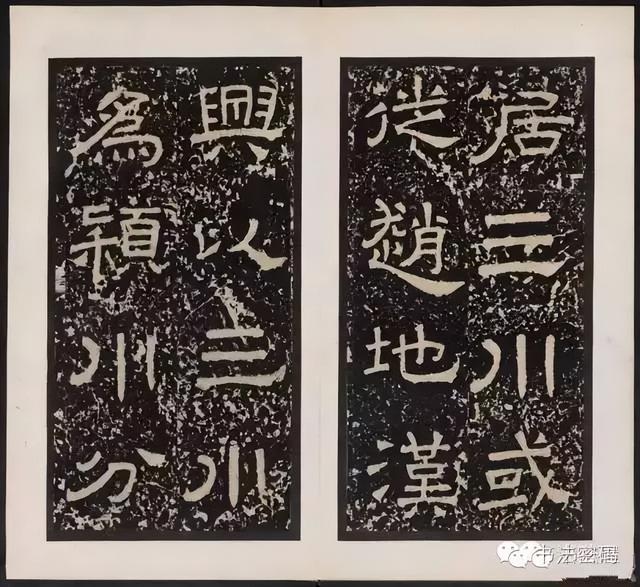 居三川或
徙趙地漢
興以三川
爲穎川分
书法密